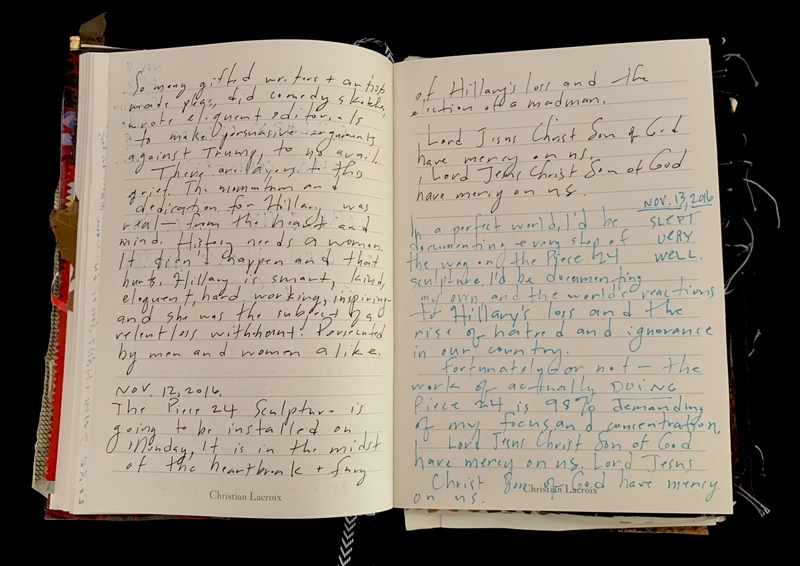 So many gifted writers + artists
made pleas, did comedy sketches,
wrote eloquent editorials
to make persuasive arguments
against Trump, to no avail.
There are layers to this
grief. The momentum and
dedication for Hillary was
real — from the heart and
mind. History needs a woman.
It didn't happen and that
hurts. Hillary is smart, kind,
eloquent, hard working, inspiring
and she was the subject of a
relentless witchhunt. Persecuted
by men and women alike.
NOV. 12, 2016.
The Piece 24 Sculpture is
going to be installed on
Monday. It is in the midst
of the heartbreak + fury
Christian Lacroix
of Hillary's loss and the
election of a madman.
Lord Jesus Christ Son of God
have mercy on us.
Lord Jesus Christ Son of God
have mercy on us.
NOV. 13, 2016
SLEPT
VERY
WELL.
In a perfect world, I'd be
documenting every step of
the way on the Piece 24
sculpture. I'd be documenting
my own, and the world's reactions
to Hillary's loss and the
rise of hatred and ignorance
in our country.
Fortunately or not — the
work of actually DOING
Piece 24 is 98% demanding
of my focus and concentration.
Lord Jesus Christ Son of God
have mercy on us. Lord Jesus
Christ Son of God have mercy
on us.
Christian Lacroix